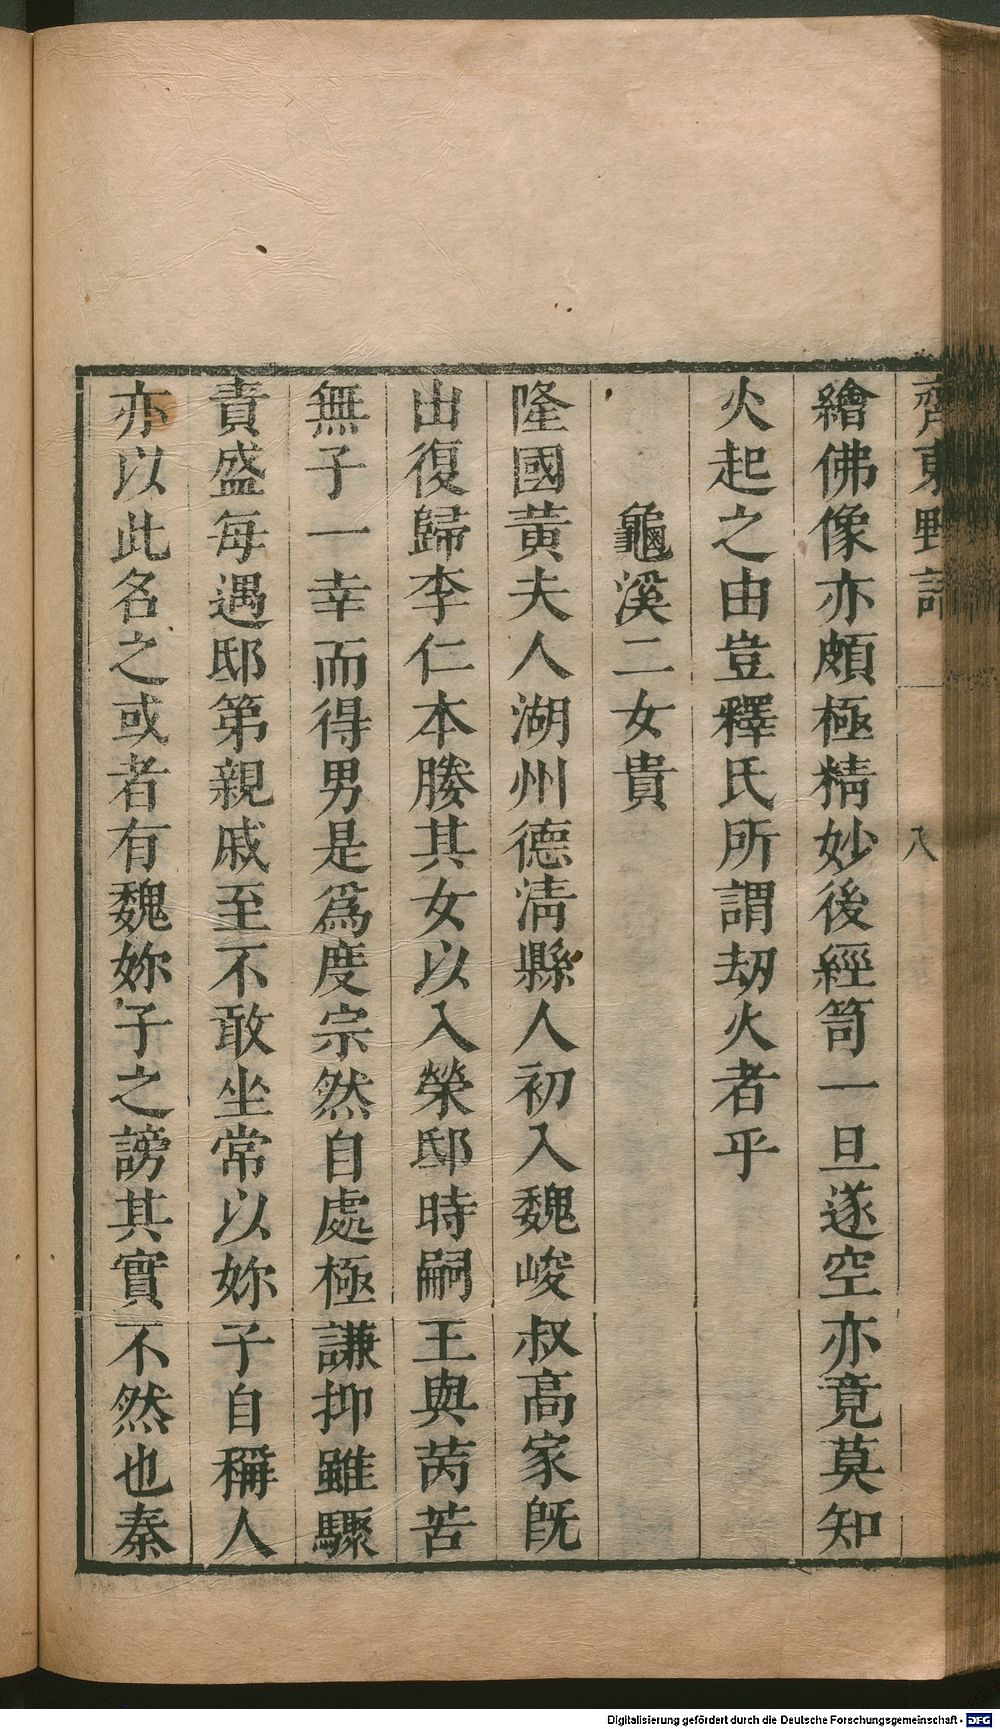 齊東野語 八
繪佛像亦頗極精妙後經笥一旦遂空亦竟莫知
火起之由豈釋氏所謂刼火者乎
龜溪二女貴
隆國黃夫人湖州德淸縣人初入魏峻叔高家旣
出復歸李仁本媵其女以入榮邸時嗣王與芮苦
無子一幸而得男是爲度宗然自處極謙抑雖驟
責盛每遇邸第親戚至不敢坐常以妳子自稱人
亦以此名之或者有魏妳子之謗其實不然也秦
Digitalisierung gefördert durch die Deutsche Forschungsgemeinschaft - DFG